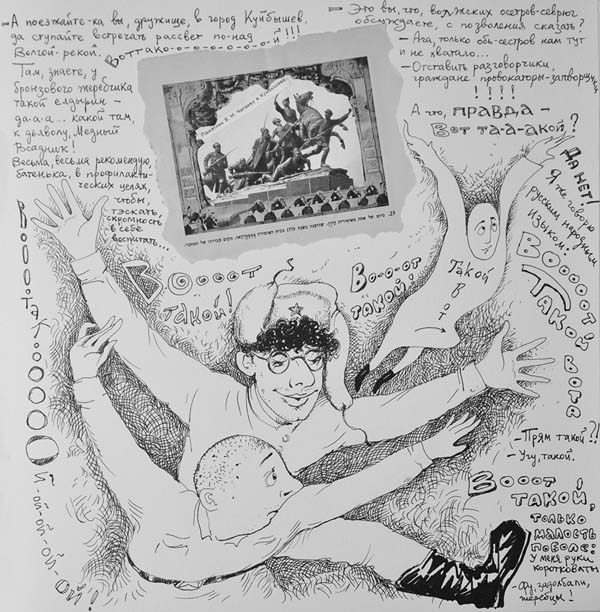 – А поезжайте-ка вы, дружище, в город Куйбышев,
да ступайте встречать рассвет по-над
Волгой-рекой.
Воттако-о-о-о-о-о-о-о-й!!!
Там, знаете, у
бронзового жеребчика
такой елдырин –
да-а-а... какой там,
к дьяволу, Медный
Всадник!
Весьма, весьма рекомендую,
батенька, в профилакти-
ческих целях,
чтобы,
тэскать,
скромность
в себе
воспитать...
– Это вы, что, волжских осетров-севрюг
обсуждаете, с позволения сказать?
– Ага, только обь-сестров нам тут
и не хватало...
– Отставить разговорчики,
граждане провокаторы-затворщики
!!!!
А что, правда –
Вот та-а-акой?
Да нет!
Я же говорю
русским народным
языком:
Вооооот
такой вота
Памятник В. И. Чапаеву в г. Куйбышеве
Вооот
такой!
Во-о-от
такой,
Такой
вот
– Прям такой?!!
– Угу, такой.
Вооот
такой,
только
малость
поболе:
у меня руки
коротковаты
– Фу, задолбали,
жеребцы!